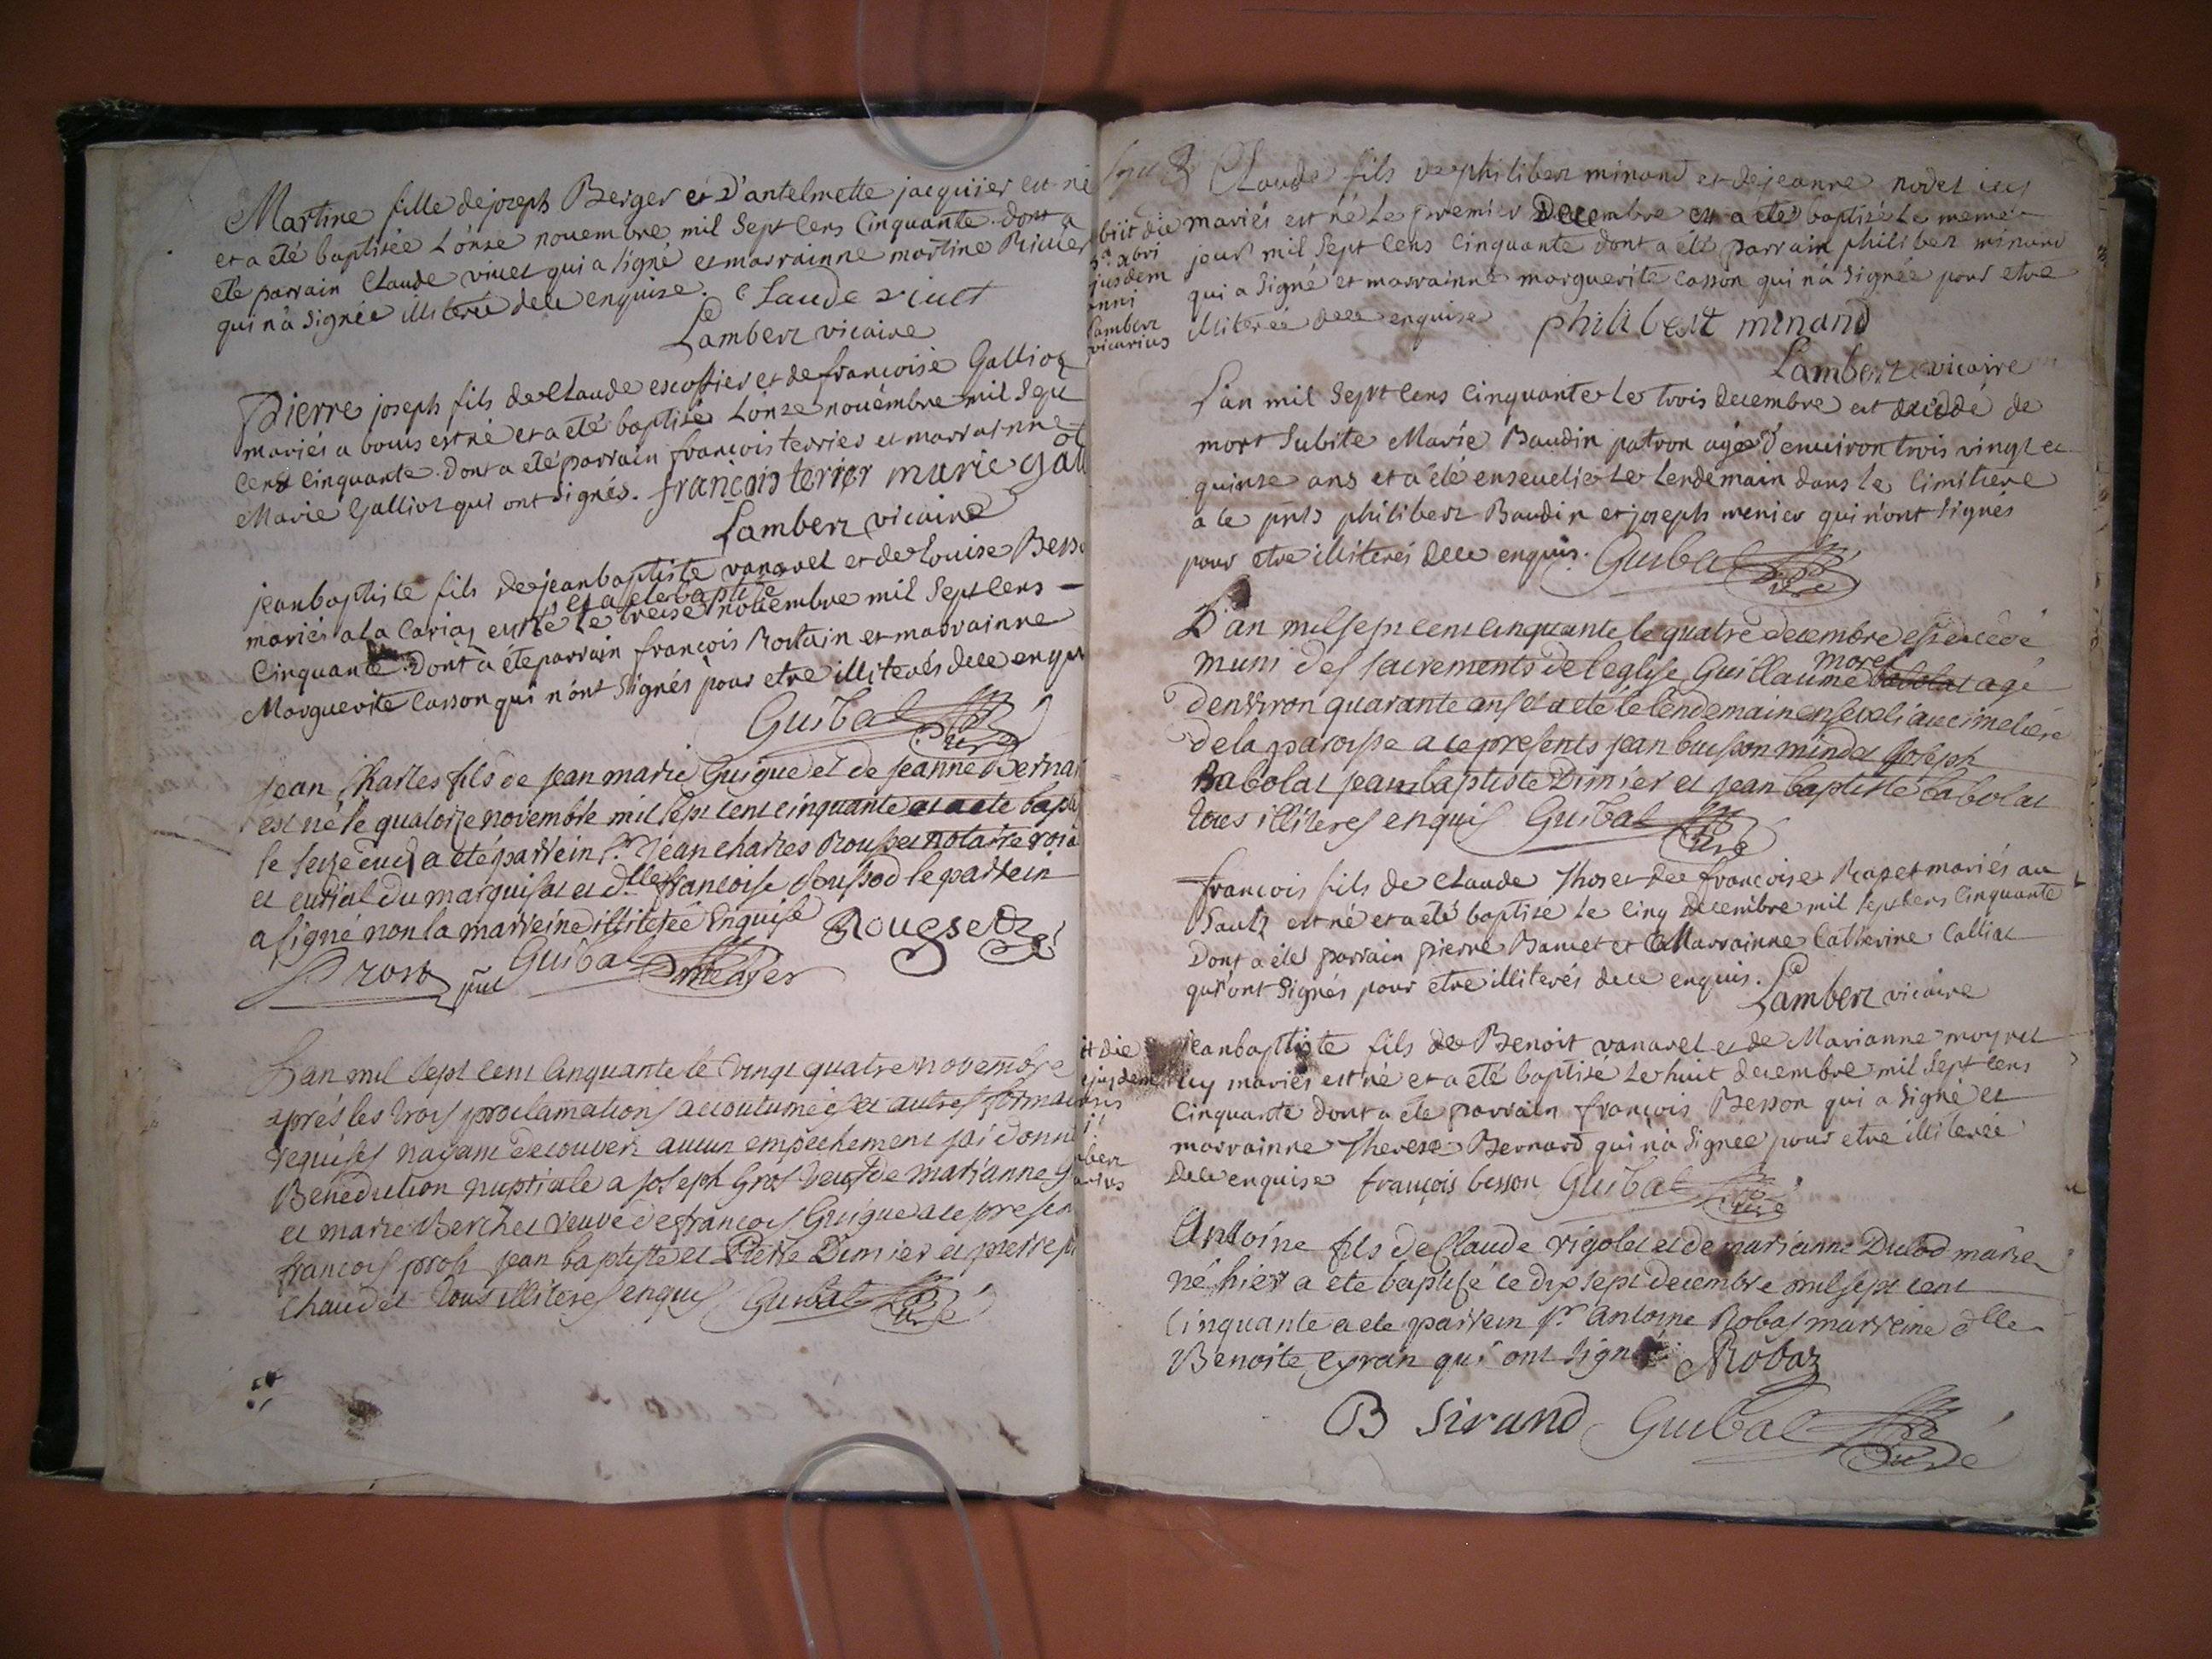 Martine fille de joseph Berger et d'antelmette jacquier est né
et a été baptisée L'onze nouembre mil Sept Cens Cinquante. dont a
ete parrain Claude viuet qui a signé et marrainne martine Riuier
qui n'a Signée illiterée de ce enquise. Claude viuet
Lambert vicaire
Pierre joseph fils de Claude escoffier et de francoise Galliot
mariés a bours est né et a eté baptisé L'onze nouémbre mil Sept
Cens Cinquante. dont a été parrain françois terrier et marrainne
Marie Galliot qui ont signés. françois terier marie gall
Lambert vicaire
jeanbaptiste fils de jeanbaptiste vanarel et de Louise Bess
et a ete baptisé
mariés a la Cariaz est né Le treise nouembre mil Sept Cens
Cinquante. Dont a été parrain françois Rostain et marrainne
Marguerite Casson qui n'ont Signés pour etre illiterés de ce enqui
Guibal curé
jean Charles fils de jean marie Guigue et de jeanne Bernar
est né le quatorze novembre mil sept cent cinquante et a ete bapt
le seize dud a été parrein Sr. jean charles Rousset notaire roia
et curial du marquisat et dlle francoise le parrein
a signé non la marreine illiterée Enquise Rougset
Guibal
L'an mil sept cent Cinquante le vingt quatre novembre
aprés les trois proclamations accoutumées et autres format
requises nayant decouvert aucun empechement jai donné
Benediction nuptiale a joseph Gros veuf de marianne G
et marie Berthet veuve de francois Guigue a ce presen
francois jean baptiste et Pierre Dimier et pierre
Chaudet tous illiteres enquis Guibal curé
Claude fils de philibert minand et de jeanne nodet icy
mariés est né Le premier Decembre et a été baptisé Le meme
jour mil Sept Cens Cinquante dont a été parrain philibert minand
qui a Signé et marrainne marguerite Casson qui n'a Signée pour etre
illiterée de ce enquise philibert minand
Lambert vicaire
biit die
abri
jusdem
anni
Lambert
vicarius
L'an mil Sept Cens Cinquante Le trois decembre est décédé de
mort Subite Marie Baudin patron agé d'enuiron trois vingt et
quinse ans et a été enseuelie Le Lendemain dans Le Cimitiere
a ce pnts philibert Baudin et joseph menier qui n'ont Signés
pour etre illiterés de ce enquis. Guibal curé
L'an mil sept cent cinquante le quatre decembre est décédé
muni des sacrements de l'eglise Guillaume morel babolat agé
d'environ quarante ans et a eté le lendemain enseveli au cimetiére
de la paroisse a ce presents jean buisson mindet joseph
Babolat jean baptiste Dimier et jean baptiste babolat
tous illiteres enquis Guibal curé
françois fils de Claude Thoset de francoise Rapet mariés au
Sault est né et a été baptisé Le Cinq decembre mil Sept Cens Cinquante
Dont a été parrain pierre et Marrainne Catherine Calliat
qui ont Signés pour etre illiterés de ce enquis.
Lambert vicaire
jeanbaptiste fils de Benoit vanarel et de Marianne moyret
icy mariés est né et a été baptisé Le huit decembre mil Sept Cens
Cinquante dont a été parrain françois Besson qui a Signé et
marrainne Therese Bernard qui n'a Signée pour etre illiterée
de ce enquise françois besson Guibal curé
it die
ejusdem
Antoine fils de Claude rigolet et de marianne Dulod marie
né hier a eté baptisé ce dix sept decembre mil sept cent
Cinquante a ete parrein Sr. antoine Robat marreine dlle
Benoite qui ont signé Robaz
B Sirand Guibal Curé